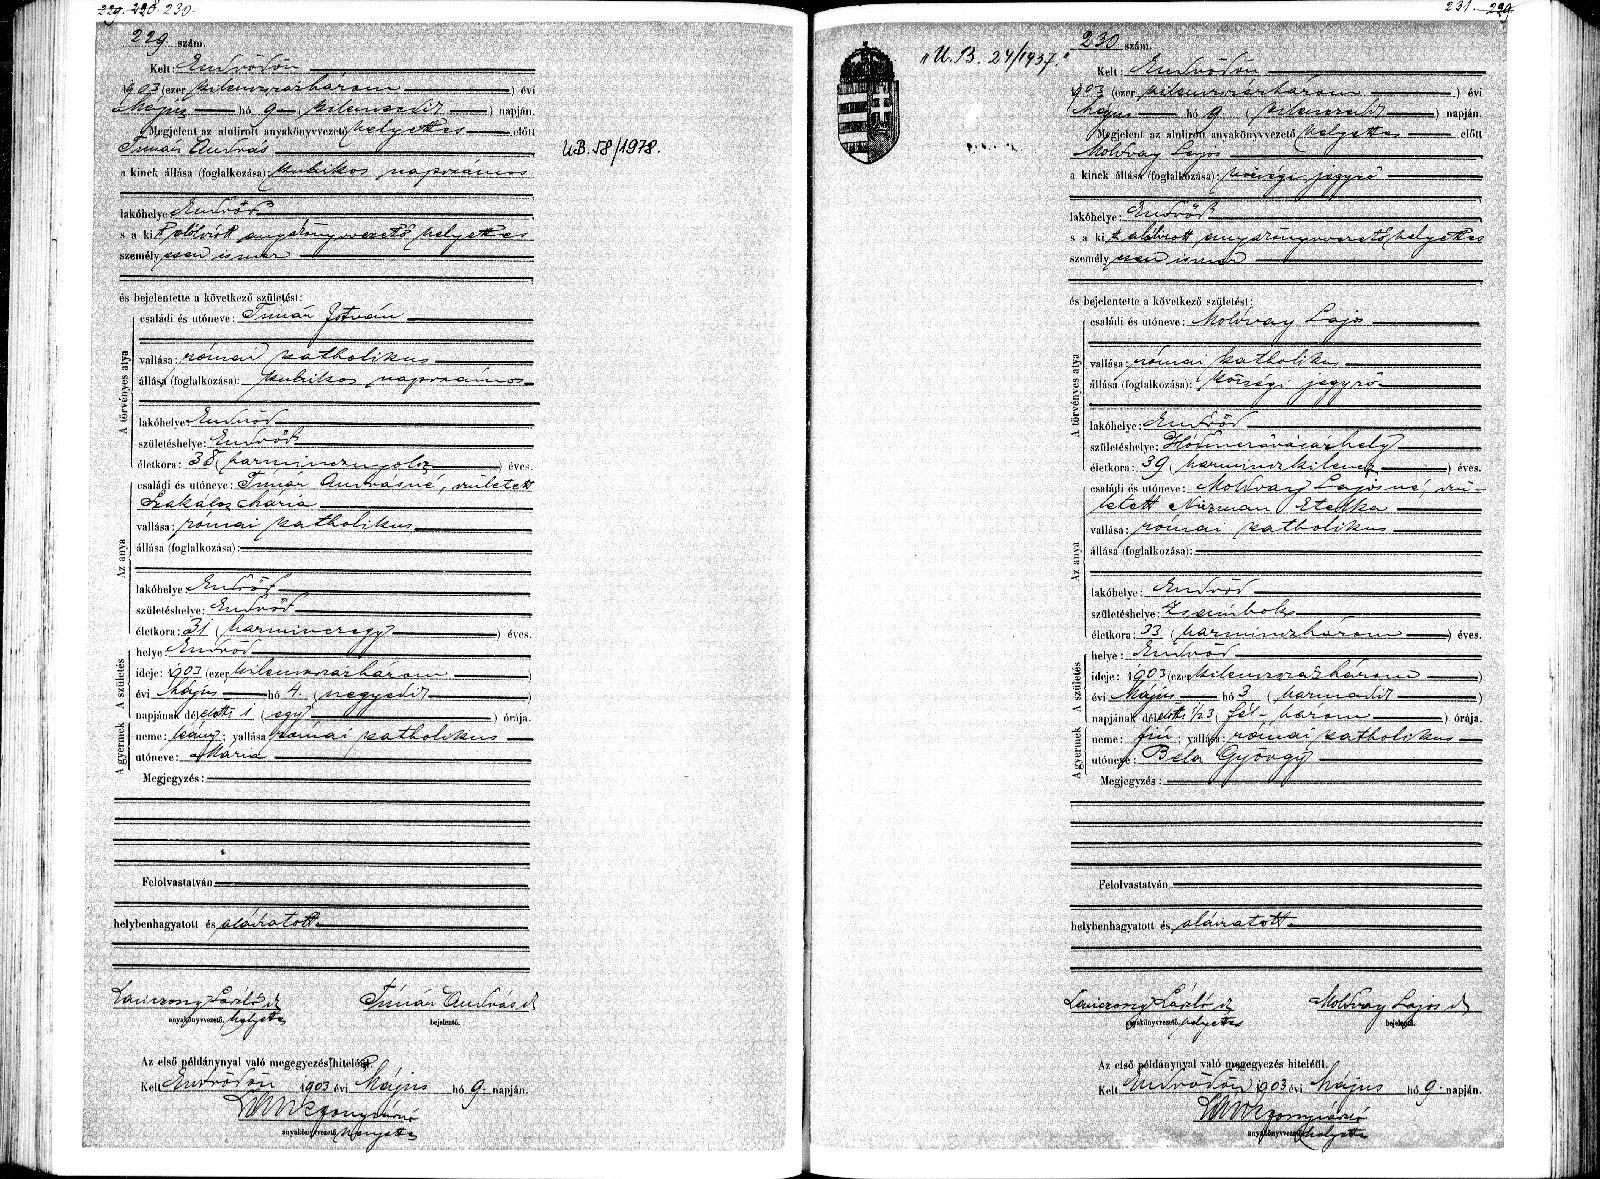 229. 228. 230.
229 szám.
Kelt: Endrődön
1903 (ezer kilenczszázhárom) évi
Május hó 9 (kilenczedik) napján.
Megjelent az alulirott anyakönyvvezető helyettes előtt
Timár András
a kinek állása (foglalkozása): kubikos napszámos
lakóhelye Endrőd
s a kit alulirott anyakönyvvezető helyettes
személyesen ismer
és bejelentette a következő születést:
A törvényes atya
családi és utóneve: Timár István
vallása: római katholikus
állása (foglalkozása): kubikos napszámos
lakóhelye Endrőd
születéshelye: Endrőd
életkora: 38 (harmincznyolcz) éves.
Az anya
családi és utóneve: Timár Andrásné, született
Szakálos Mária
vallása: római katholikus
állása (foglalkozása):
lakóhelye Endrőd
születéshelye: Endrőd
életkora: 31 (harminczegy) éves.
A születés
helye: Endrőd
ideje: 1903 (ezer kilenczszázhárom)
évi Május hó 4 (negyedik)
napjának délelőtti 1 (egy) órája.
A gyermek
neme: leány; vallása római katholikus
utóneve: Mária
Megjegyzés:
Felolvastatván
helybenhagyatott és aláiratott
László
anyakönyvvezető helyettes
Timár András
bejelentő.
Az első példánynyal való megegyezés hiteléül.
Kelt Endrődön 1903 évi Május hó 9 napján.
anyakönyvvezető helyettes
U.B. 58/1978.
231. 229
"U.B. 24/1937."
230 szám.
Kelt: Endrődön
1903 (ezer kilenczszázhárom) évi
Május hó 9 (kilenczedik) napján.
Megjelent az alulirott anyakönyvvezető helyettes előtt
Moldvay Lajos
a kinek állása (foglalkozása): községi jegyző
lakóhelye: Endrőd
s a kit alulirott anyakönyvvezető helyettes
személyesen ismer
és bejelentette a következő születést:
A törvényes atya
családi és utóneve: Moldvay Lajos
vallása: római katholikus
állása (foglalkozása): községi jegyző
lakóhelye: Endrőd
születéshelye: Hódmezővásárhely
életkora: 39 (harminczkilencz) éves.
Az anya
családi és utóneve: Moldvay Lajosné, szü-
letett Etelka
vallása: római katholikus
állása (foglalkozása):
lakóhelye: Endrőd
születéshelye: Zsombolya
életkora: 33 (harminczhárom) éves.
A születés
helye: Endrőd
ideje: 1903 (ezer kilenczszázhárom)
évi Május hó 3 (harmadik)
napjának délelőtti 1/23 (fél-három) órája.
A gyermek
neme: fiú; vallása: római katholikus
utóneve: Béla György
Megjegyzés:
Felolvastatván
helybenhagyatott és aláiratott
László
anyakönyvvezető helyettes
Moldvay Lajos
bejelentő.
Az első példánynyal való megegyezés hiteléül.
Kelt Endrődön 1903 évi Május hó 9 napján.
anyakönyvvezető helyettes